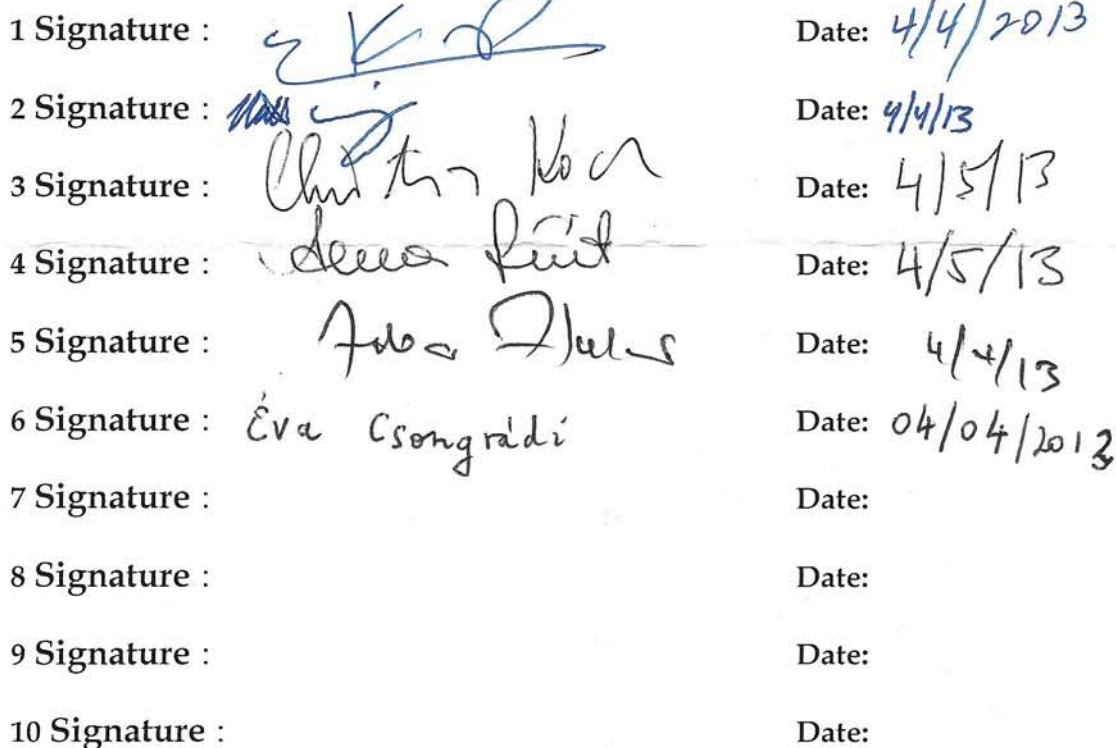 1 Signature : Date: 4/4/2013
2 Signature : Date: 4/4/13
3 Signature : Koch Date: 4/5/13
4 Signature : Date: 4/5/13
5 Signature : Date: 4/4/13
6 Signature : Éva Csongrádi Date: 04/04/2013
7 Signature : Date:
8 Signature : Date:
9 Signature : Date:
10 Signature : Date: